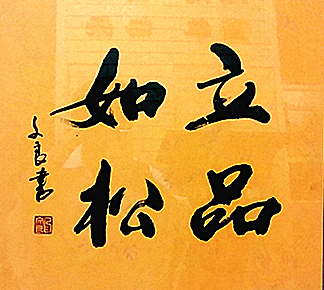 立品
如松
文良書